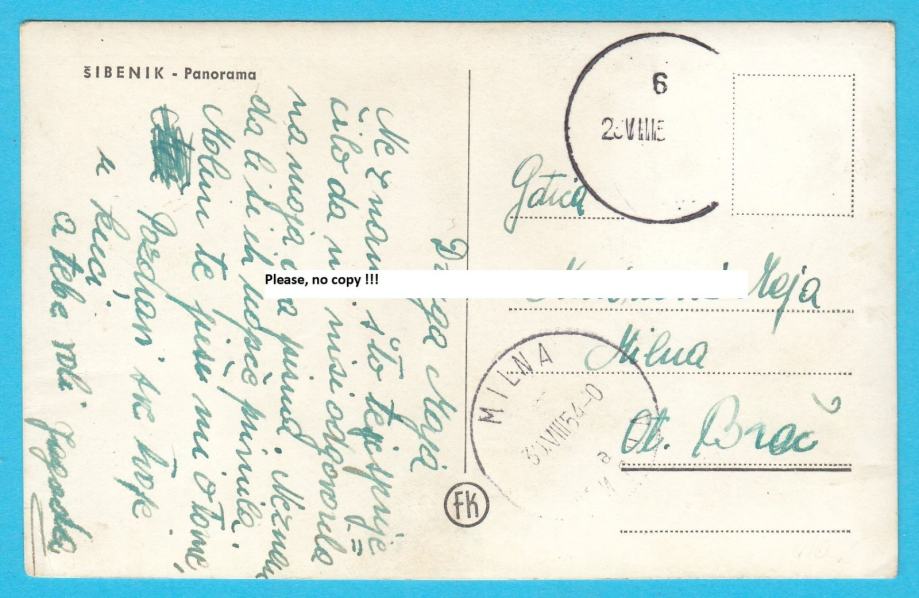 ŠIBENIK - Panorama
Draga Maja
Ne znam što te sprije=
čilo da mi nisi odgovorila
na moja pisma. Ne znam
da li si ih uopće primila.
Molim te piši mi o tome.
Pozdravi sve tvoje
u kući
a tebe voli Jagoda
6
Gđica
Maja
Milna
Ot. Brač
MILNA
VIII 54-0
a
FK
Please, no copy !!!